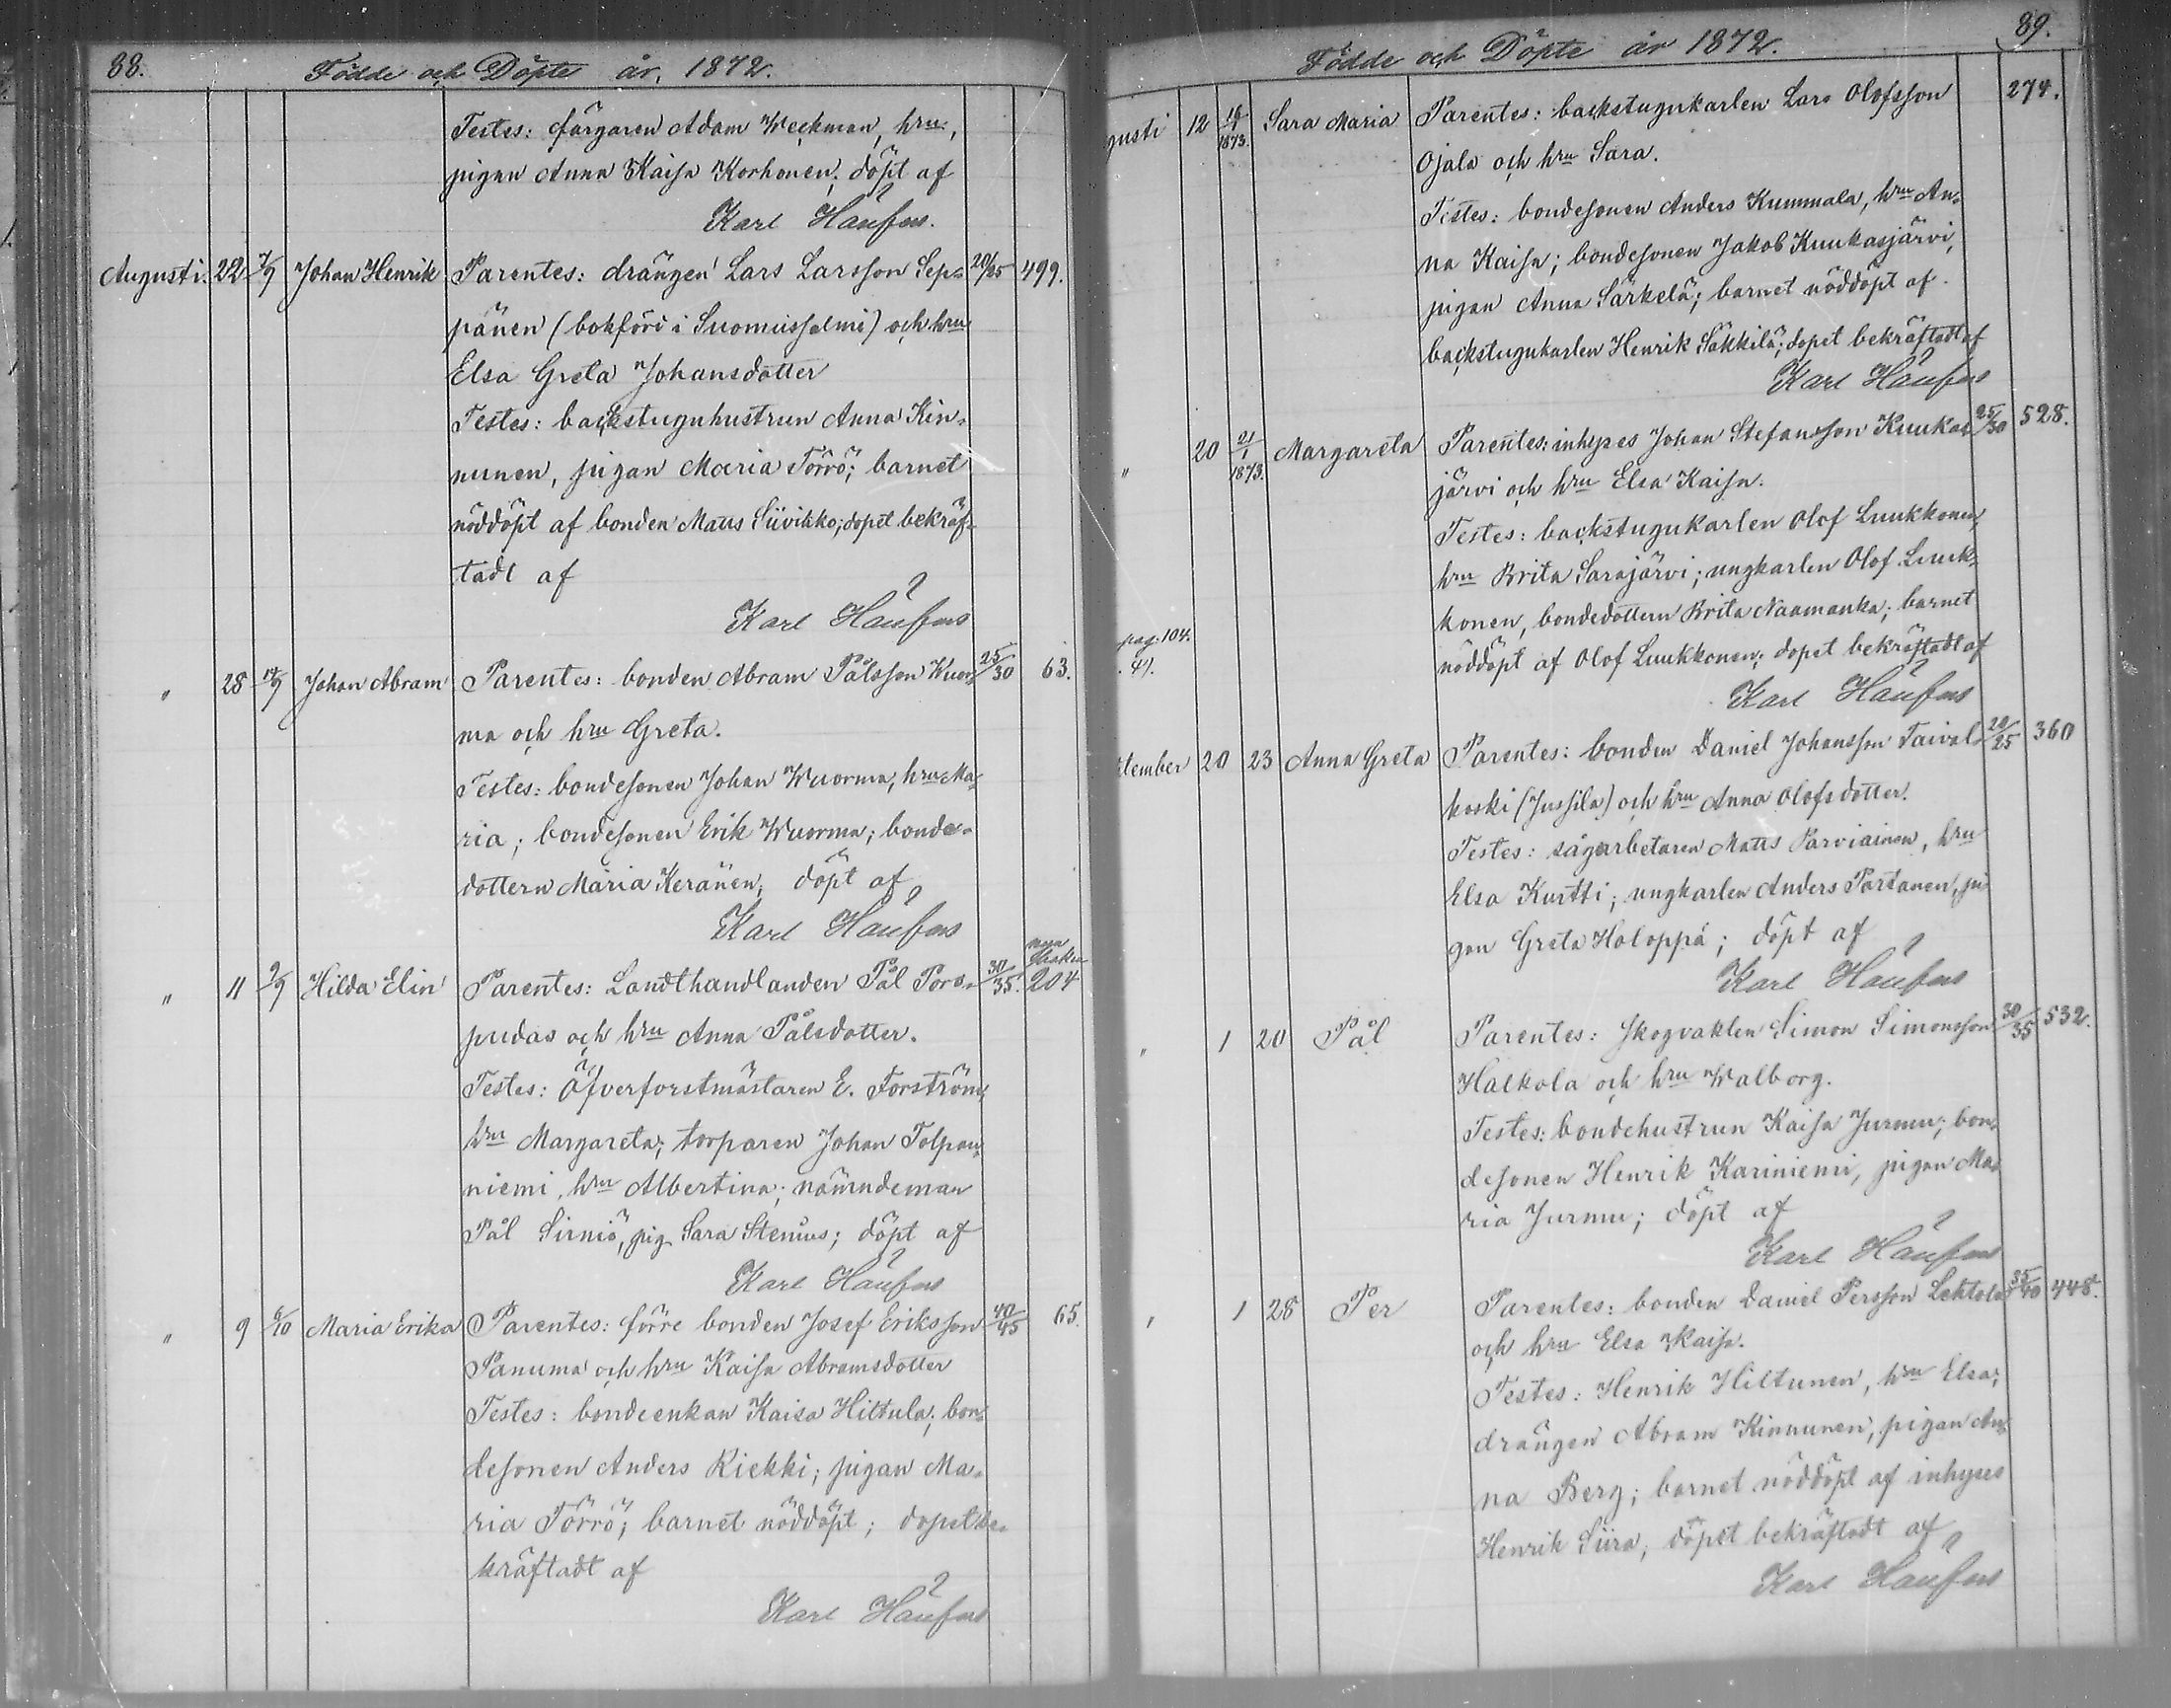 88.
Födde och Döpte år, 1872.
Testes: färgaren Adam Weckman, hru,
pigan Anna Kaisa Korhonen; döpt af
Karl
Augusti. 22 7/9 Johan Henrik Parentes: drängen Lars Larsson Sep- 20/25 499.
pänen (bokförd i Suomussalmi) och hru
Elsa Greta Johansdotter
Testes: backstuguhustrun Anna Kin-
nunen, pigan Maria Törrö; barnet
nöddöpt af bonden Matts Siivikko; dopet bekräf-
tadt af
Karl
" 28 Johan Abram Parentes: bonden Abram Pålsson Wuor- 25/30 63.
ma och hru Greta.
Testes: bondesonen Johan Wuorma, hru Ma-
ria; bondesonen Erik Wuorma; bonde-
dottern Maria Keränen; döpt af
Karl
" 11 Hilda Elin Parentes: Landthandlanden Pål Poro- 30/35. 204
pudas och hru Anna Pålsdotter.
Testes: Öfverforstmästaren E. Forström,
hru Margareta; torparen Johan Tolpan-
niemi, hru Albertina; nämndeman
Pål Sirniö, pig. Sara Stenius; döpt af
Karl
" 9 6/10 Maria Erika Parentes: förre bonden Josef Eriksson 40/45 65.
Panuma och hru Kaisa Abramsdotter
Testes: bondeenkan Kaisa Hiltula; bon-
desonen Anders Riekki; pigan Ma-
ria Törrö; barnet nöddöpt; dopet be-
kräftadt af
Karl
Födde och Döpte år 1872.
89.
gusti 12 1873. Sara Maria Parentes: backstugukarlen Lars Olofsson 274.
Ojala och hru Sara.
Testes: bondesonen Anders Kummala, hru An-
na Kaisa; bondesonen Jakob Kuukasjärvi,
pigan Anna Särkelä; barnet nöddöpt af
backstugukarlen Henrik Säkkilä; dopet bekräftadt af
Karl
" 20 21/1 1873. Margareta Parentes: inhyses Johan Stefansson Kuukas- 25/30 528.
järvi och hru Elsa Kaisa.
Testes: backstugukarlen Olof Luukkonen,
hru Brita Sarajärvi; ungkarlen Olof Luuk-
konen, bondedottern Brita Naamanka; barnet
pag. 104.
nöddöpt af Olof Luukkonen; dopet bekräftadt af
Karl
tember 20 23 Anna Greta Parentes: bonden Daniel Johansson Taival- 20/25 360
koski (Jussila) och hru Anna Olofsdotter.
Testes: sågarbetaren Matts Parviainen, hru
Elsa Kurtti; ungkarlen Anders Partanen, pi-
gan Greta Holoppa; döpt af
Karl
" 1 20 Pål Parentes: Skogvakten Simon Simonsson 30/35 532.
Halkola och hru Walborg.
Testes: bondehustrun Kaisa Jurmu; bon-
desonen Henrik Kariniemi, pigan Ma-
ria Jurmu; döpt af
Karl
" 1 28 Per Parentes: bonden Daniel Persson Lehtola 35/40 448.
och hru Elsa Kaisa.
Testes: Henrik Hiltunen, hru Elsa;
drängen Abram Kinnunen, pigan An-
na Berg; barnet nöddöpt af inhyses
Henrik Siira; döpet bekräftadt af
Karl